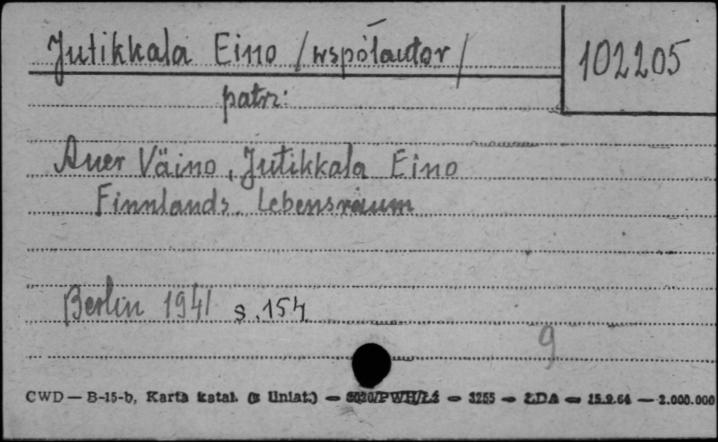 Jutikkala Eino /współautor/
102205
patrz:
Auer Väino, Jutikkala Eino
Finnlands Lebensraum
Berlin 1941 s.154
9
CWD — B-15-b, Karta katal. (z liniat.) — PWH/Łż — 3255 — ŁDA — 15.9.64 — 2.000.000